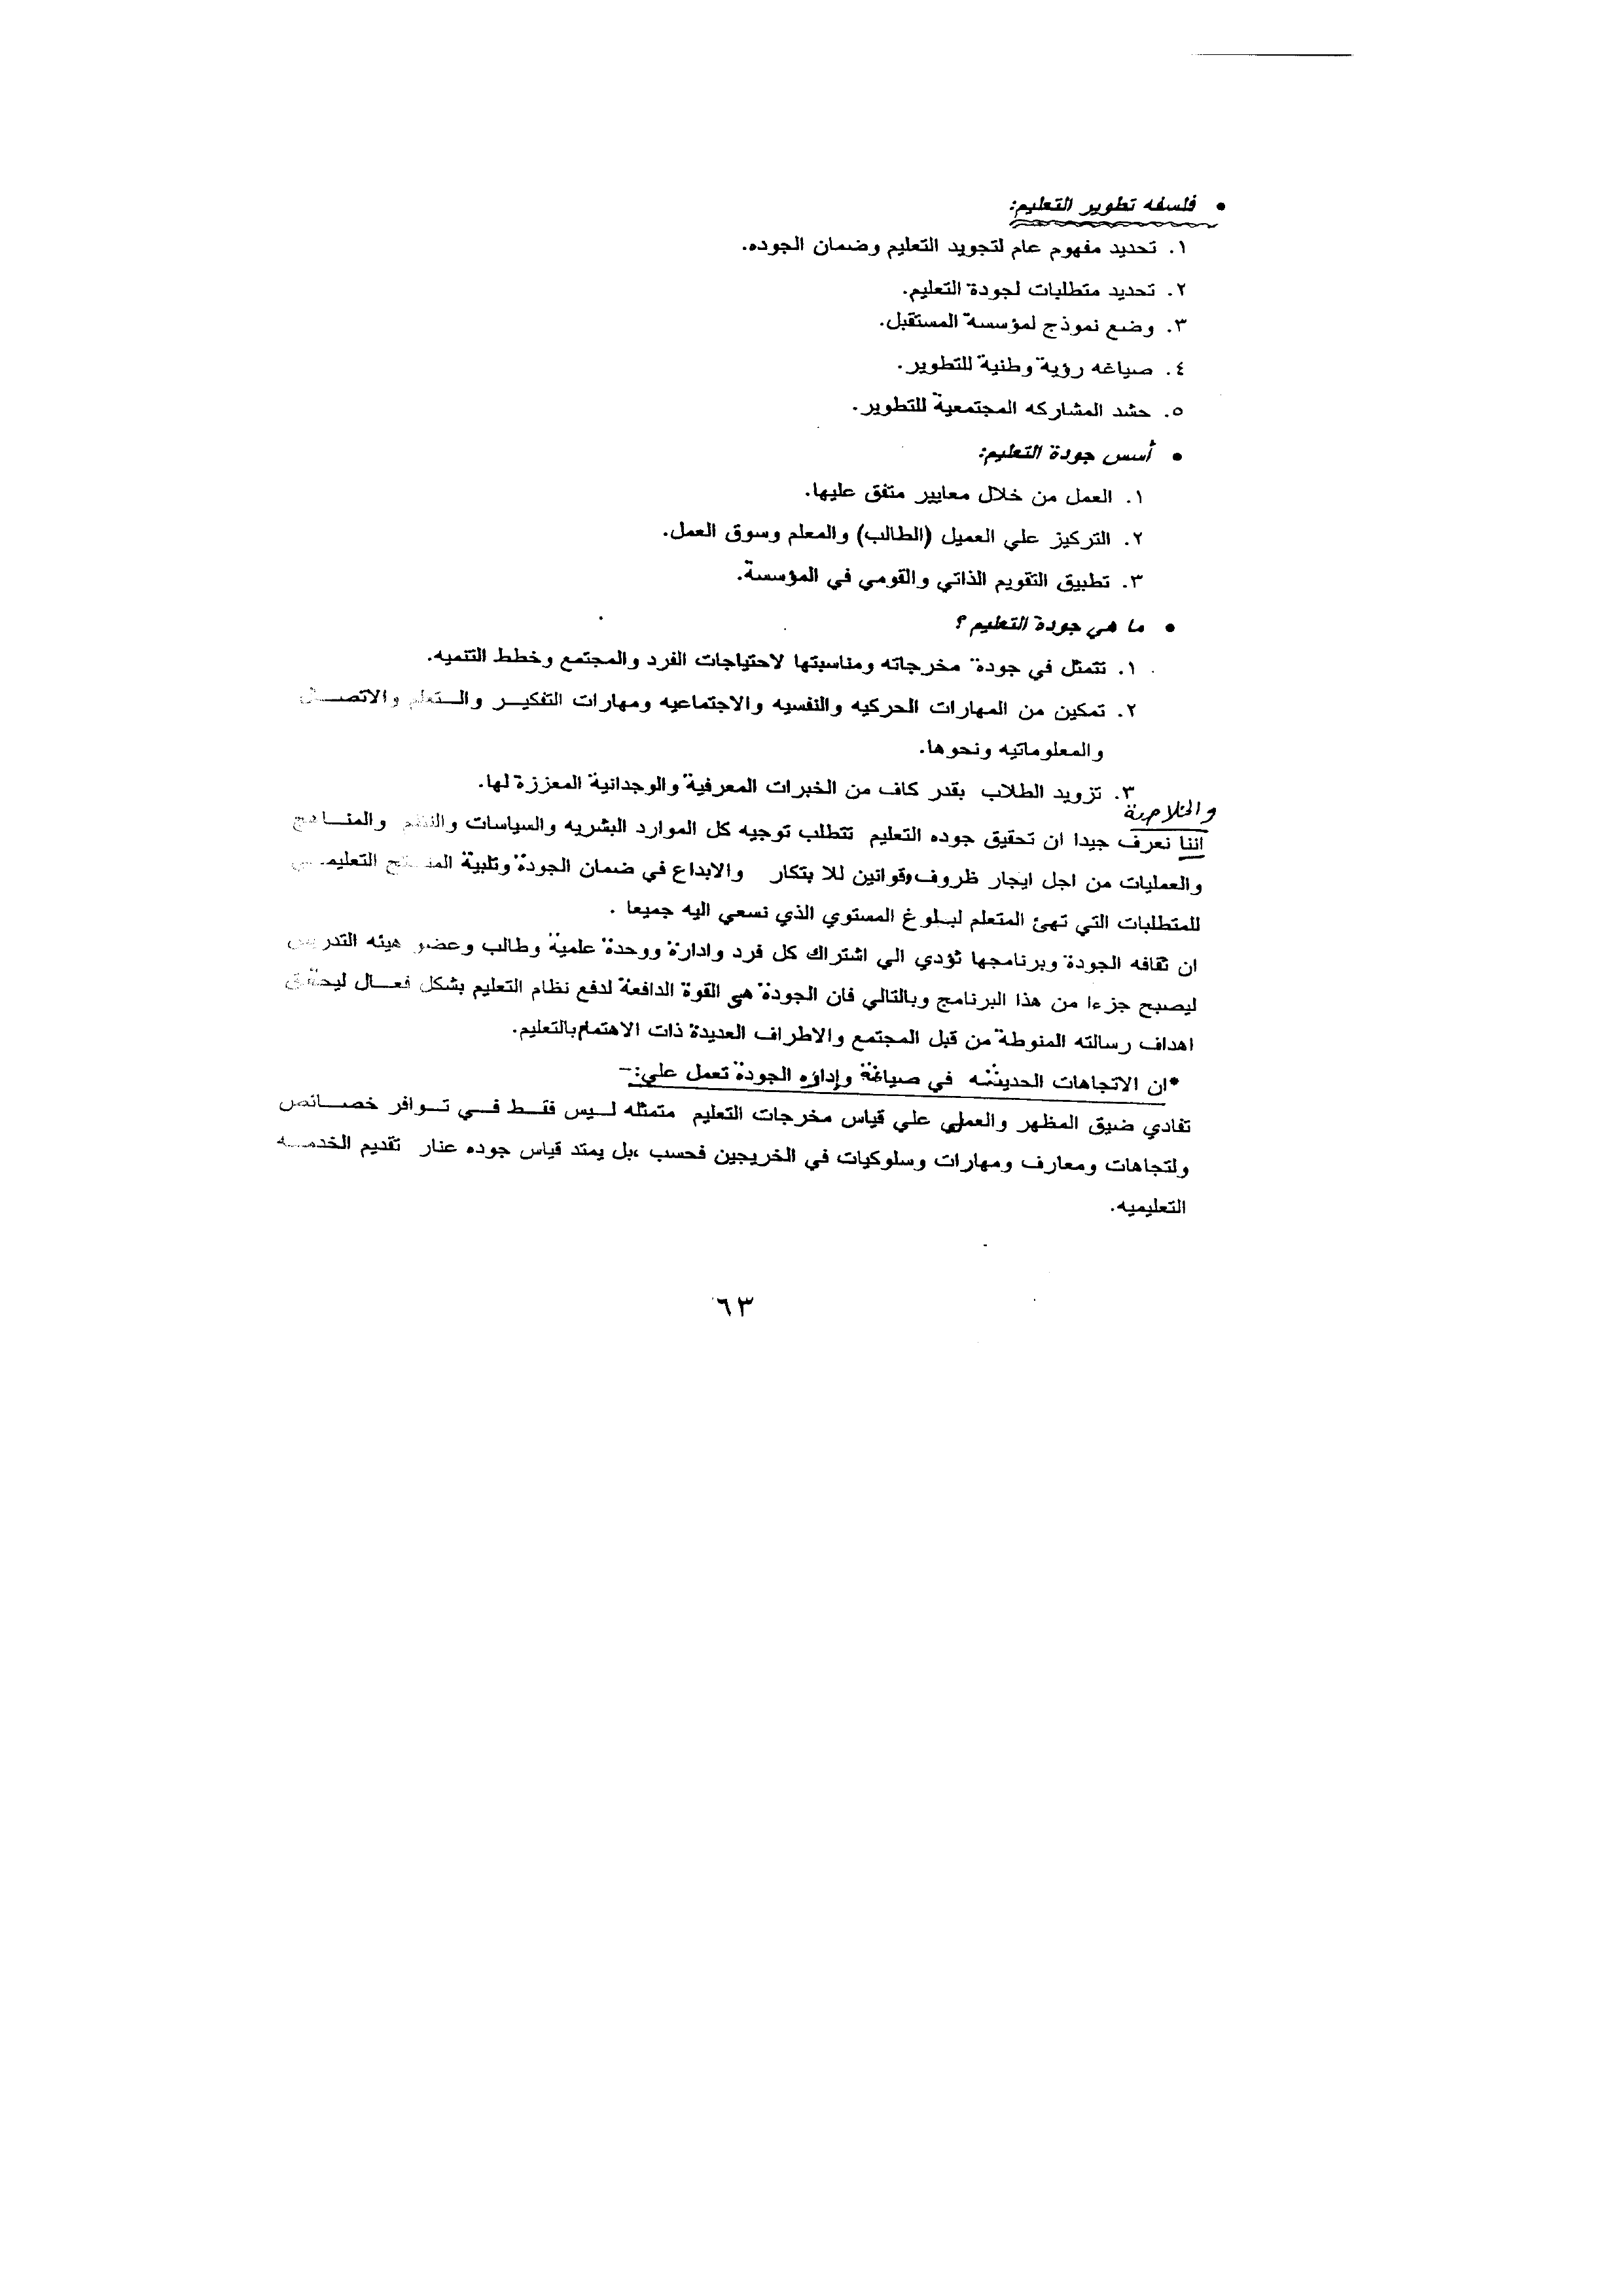 • فلسفه تطوير التعليم:
١. تحديد مفهوم عام لتجويد التعليم وضمان الجوده.
٢. تحديد متطلبات لجودة التعليم.
٣. وضع نموذج لمؤسسة المستقبل.
٤. صياغه رؤية وطنية للتطوير.
٥. حشد المشاركه المجتمعية للتطوير.
• أسس جودة التعليم:
١. العمل من خلال معايير متفق عليها.
٢. التركيز علي العميل (الطالب) والمعلم وسوق العمل.
٣. تطبيق التقويم الذاتي والقومي في المؤسسة.
• ما هي جودة التعليم ؟
١. تتمثل في جودة مخرجاته ومناسبتها لاحتياجات الفرد والمجتمع وخطط التنميه.
٢. تمكين من المهارات الحركيه والنفسيه والاجتماعيه ومهارات التفكيـر والـتعلم والاتصـال
والمعلوماتيه ونحوها.
٣. تزويد الطلاب بقدر كاف من الخبرات المعرفية والوجدانية المعززة لها.
والخلاصة
اننا نعرف جيدا ان تحقيق جوده التعليم تتطلب توجيه كل الموارد البشريه والسياسات والنظم والمنـاهج
والعمليات من اجل ايجار ظروف وقوانين للا بتكار والابداع في ضمان الجودة وتلبية المنـتج التعليمـي
للمتطلبات التي تهئ المتعلم لبلوغ المستوي الذي نسعي اليه جميعا .
ان ثقافه الجودة وبرنامجها تؤدي الي اشتراك كل فرد وادارة ووحدة علمية وطالب وعضو هيئه التدريس
ليصبح جزءا من هذا البرنامج وبالتالي فان الجودة هي القوة الدافعة لدفع نظام التعليم بشكل فعـال ليحقق
اهداف رسالته المنوطة من قبل المجتمع والاطراف العديدة ذات الاهتمام بالتعليم.
*ان الاتجاهات الحديثه في صياغة وإداره الجودة تعمل علي:-
تفادي ضيق المظهر والعملي علي قياس مخرجات التعليم متمثله لـيس فقـط فـي تـوافر خصـائص
ولتجاهات ومعارف ومهارات وسلوكيات في الخريجين فحسب ،بل يمتد قياس جوده عنار تقديم الخدمـه
التعليميه.
٦٣